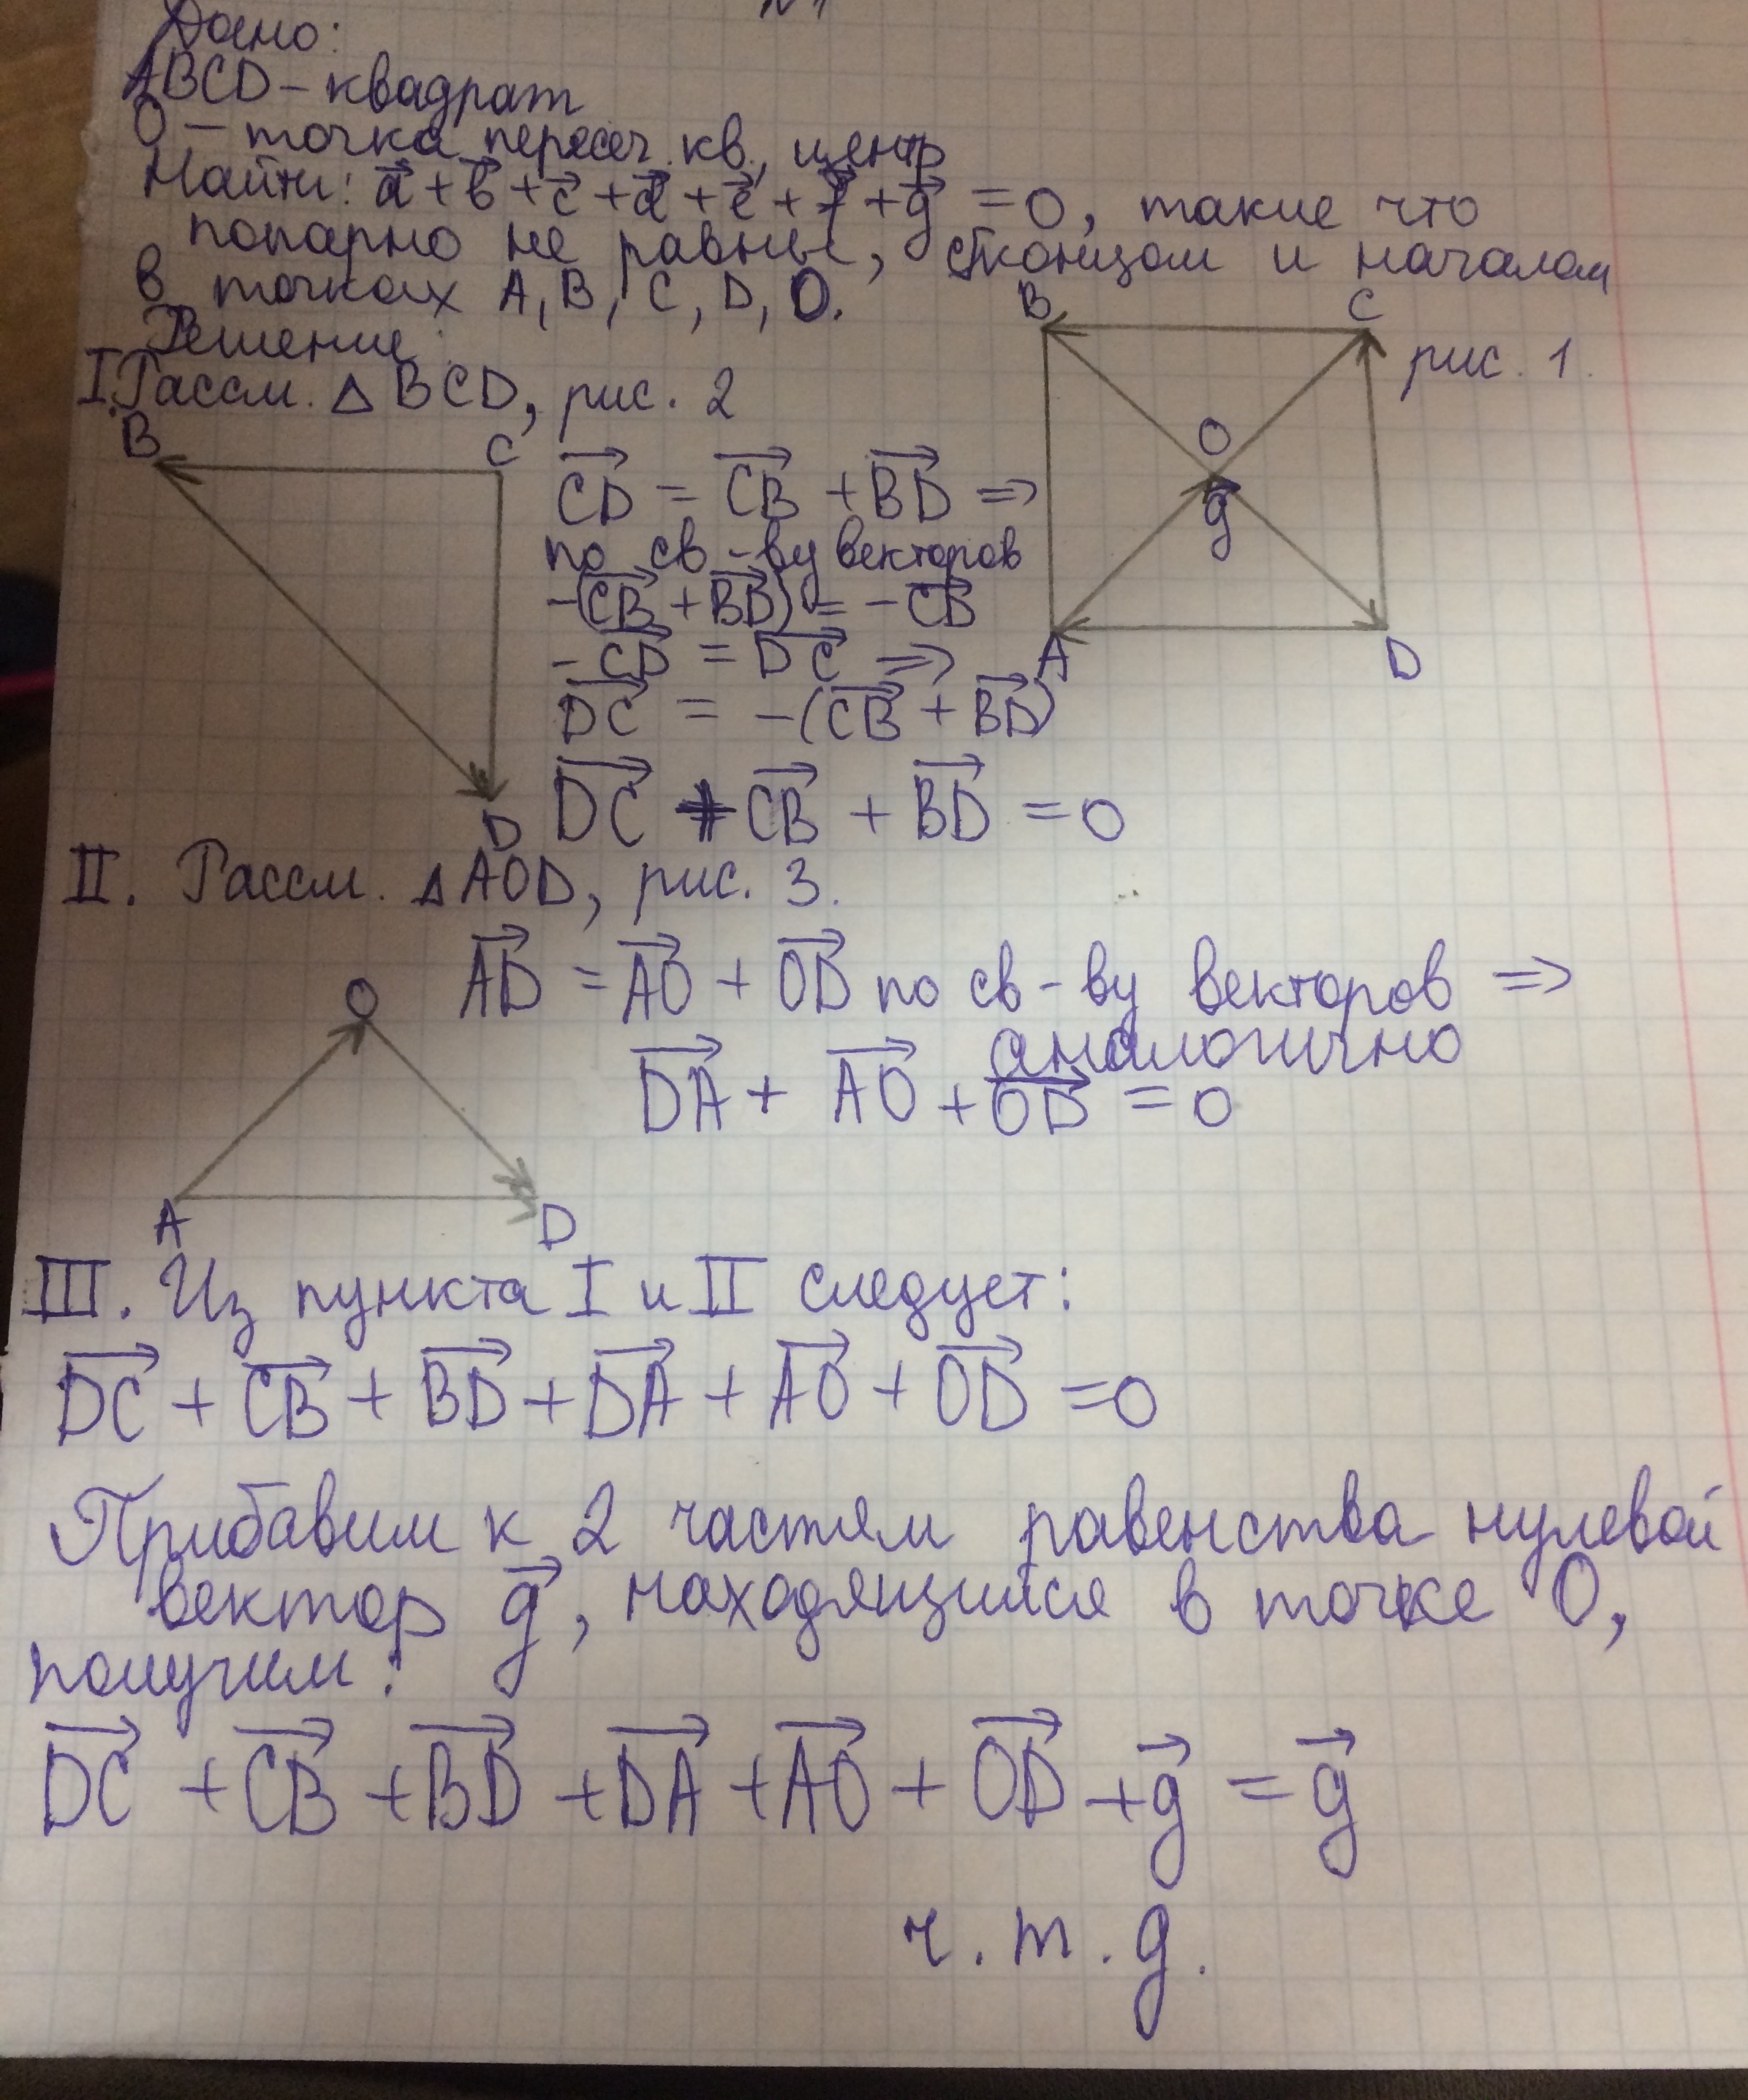 №1
Дано:
ABCD – квадрат
O – точка пересеч. кв., центр
Найти: a + b + c + d + e + f + g = 0, такие что
попарно не равны, с концом и началом
в точках A, B, C, D, O.
Решение:
I. Рассм. △ BCD, рис. 2
B C
рис. 1.
B
C
CD = CB + BD ⇒
O
g
по св-ву векторов
-(CB + BD) = -CB
-CD = DC ⇒
A
D
DC = -(CB + BD)
DC + CB + BD = 0
D
II. Рассм. △ AOD, рис. 3.
AD = AO + OD по св-ву векторов ⇒
O
аналогично
DA + AO + OD = 0
A
D
III. Из пункта I и II следует:
DC + CB + BD + DA + AO + OD = 0
Прибавим к 2 частям равенства нулевой
вектор g, находящийся в точке O,
получим:
DC + CB + BD + DA + AO + OD + g = g
ч.т.д.